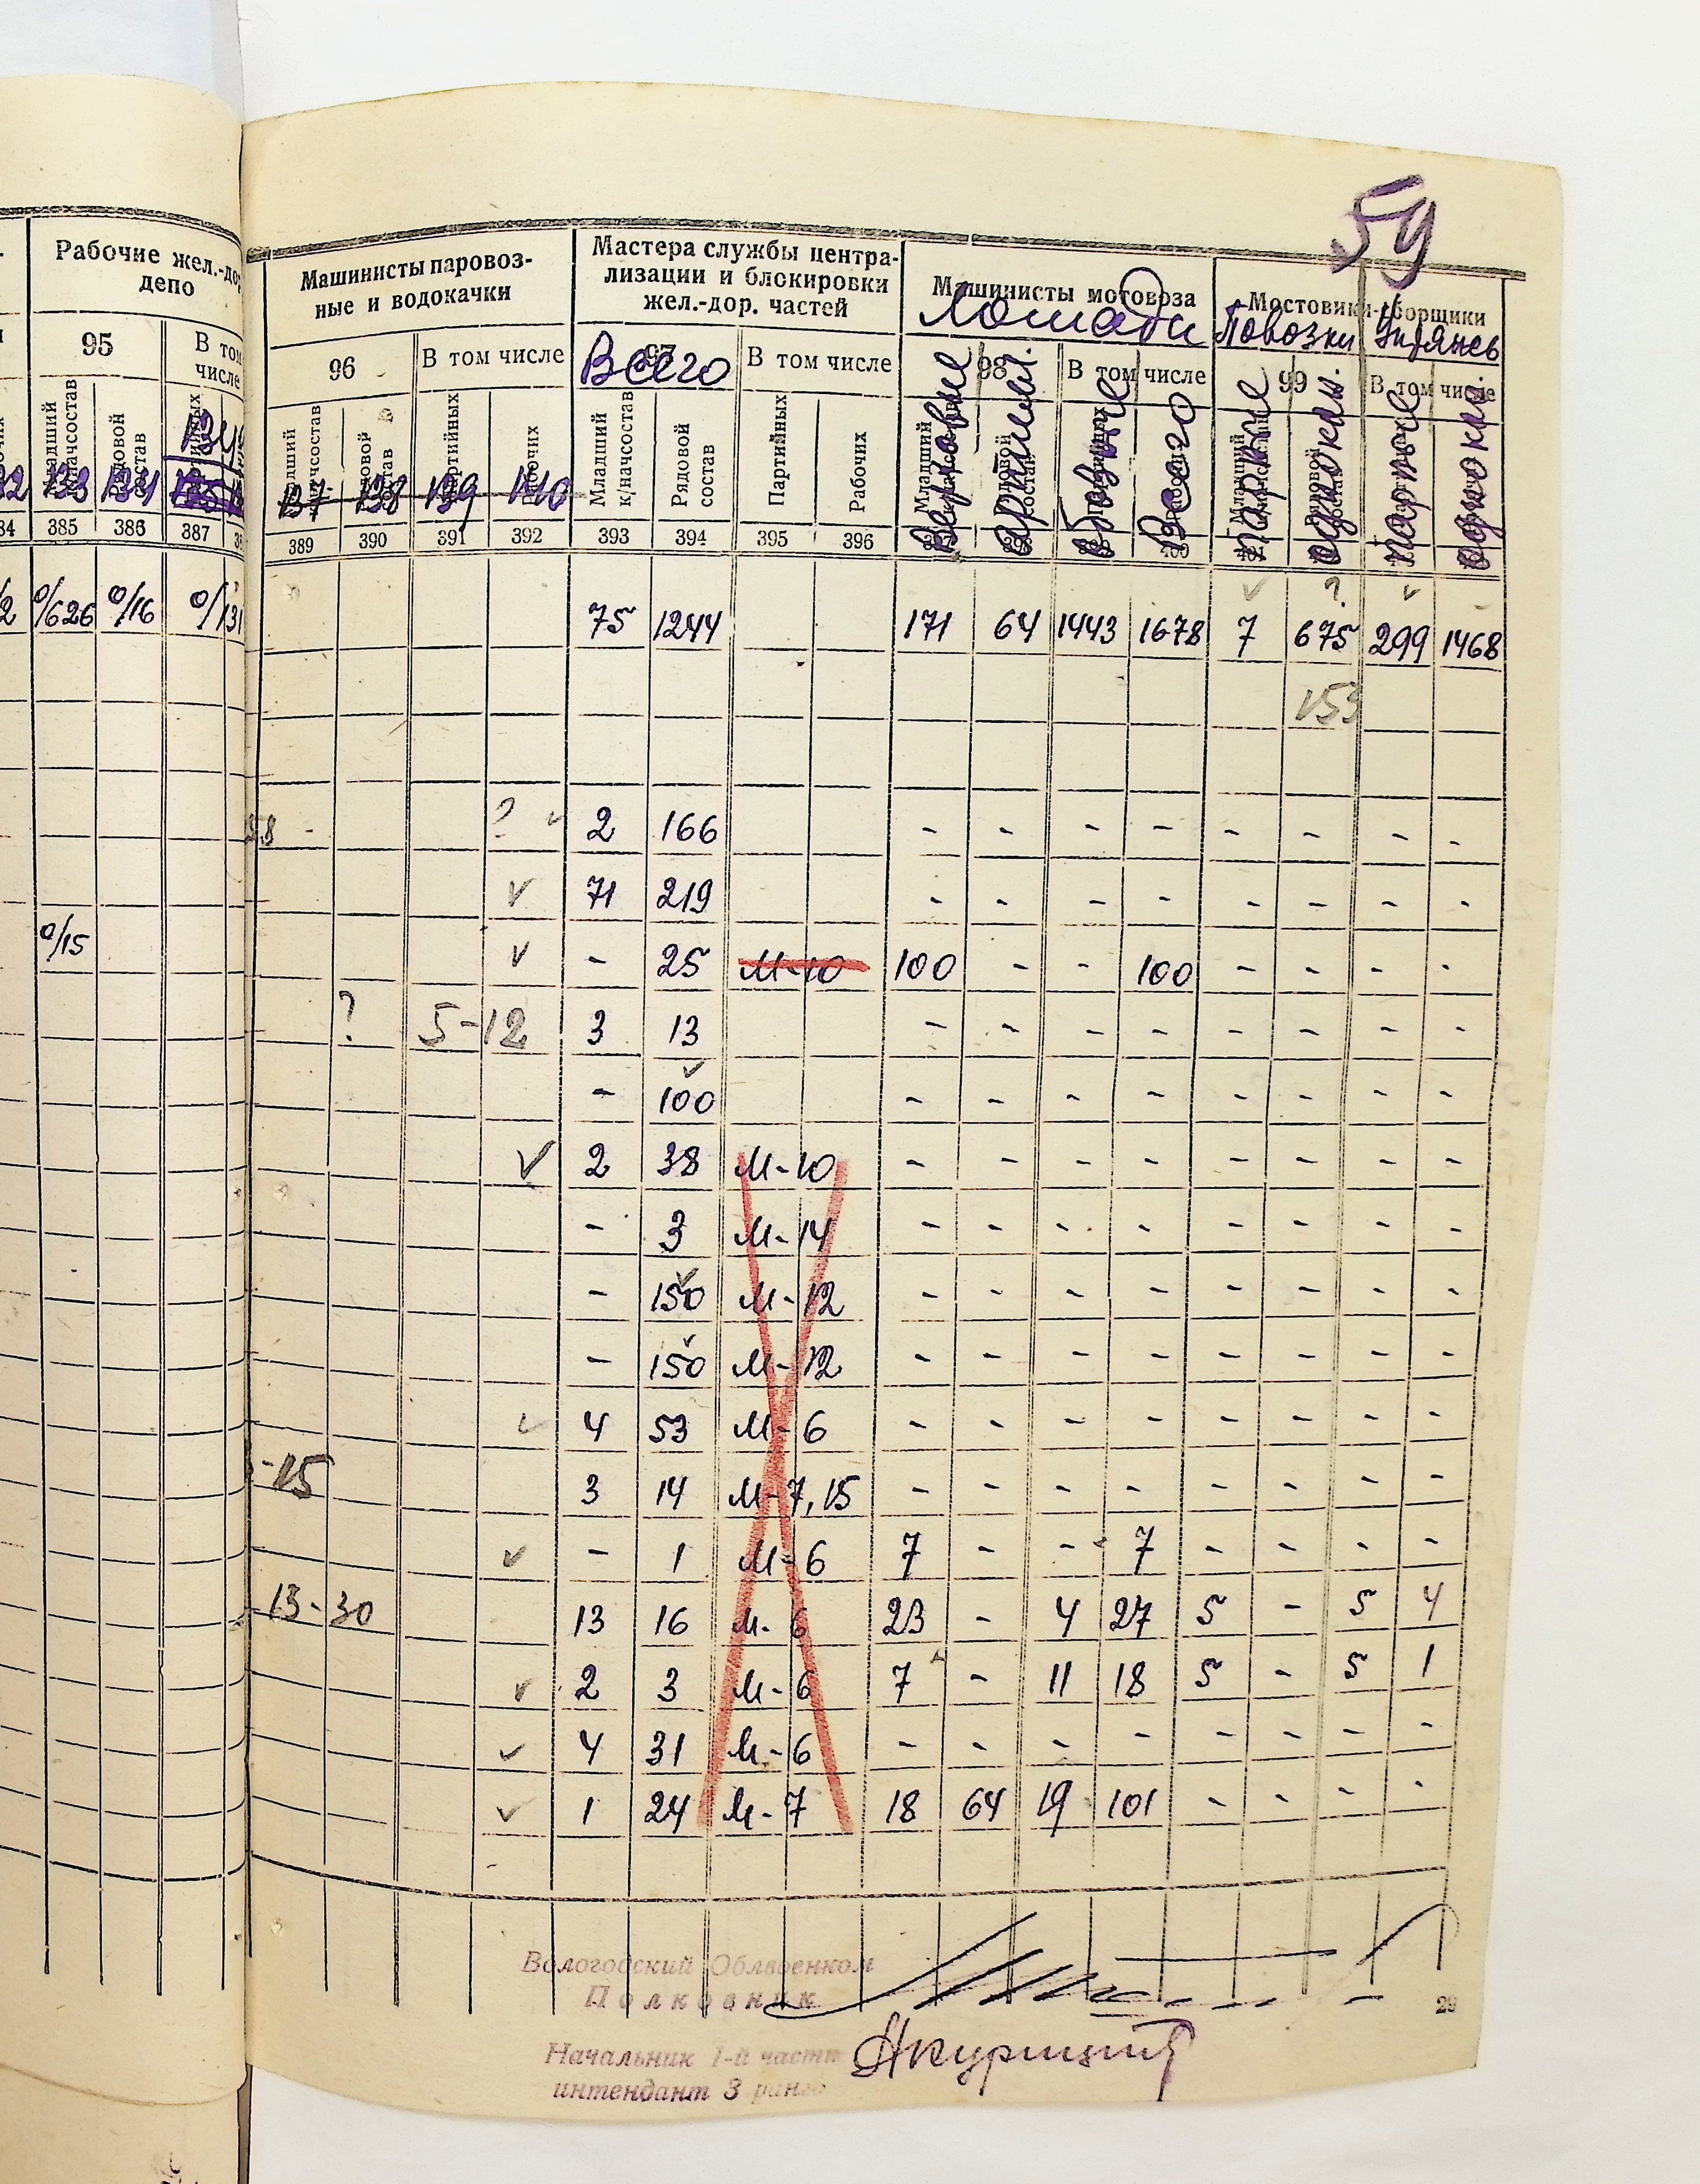 59
Рабочие жел.-дор.
депо
Машинисты паровоз-
ные и водокачки
Мастера службы центра-
лизации и блокировки
жел.-дор. частей
Машинисты мотовоза
Лошади
Мостовики-сборщики
Повозки Упряжь
95 В том числе
96 В том числе
97 Всего В том числе
98 В том числе
99 В том числе
Младший к/начсостав Рядовой состав Партийных Рабочих
Верховые Артил. Обозные Всего Парные одноконн. парные одноконн.
133 134 135
137 138 139 140
385 386 387
389 390 391 392 393 394 395 396
0/626 0/16 0/131 75 1244 171 64 1443 1678 7 675 299 1468
153
58 - ? 2 166 - - - - - - - -
71 219 - - - - - - - -
0/15 - 25 М-10 100 - - 100 - - - -
? 5-12 3 13 - - - - - - - -
- 100 - - - - - - - -
2 38 М-10 - - - - - - - -
- 3 М-14 - - - - - - - -
- 150 М-12 - - - - - - - -
- 150 М-12 - - - - - - - -
4 53 М-6 - - - - - - - -
-15 3 14 М-7,15 - - - - - - - -
- 1 М-6 7 - - 7 - - - -
13-30 13 16 М-6 23 - 4 27 5 - 5 4
2 3 М-6 7 - 11 18 5 - 5 1
4 31 М-6 - - - - - - - -
1 24 М-7 18 64 19 101 - - - -
Вологодский Облвоенком
Полковник
29
Начальник 1-й части
интендант 3 ранга